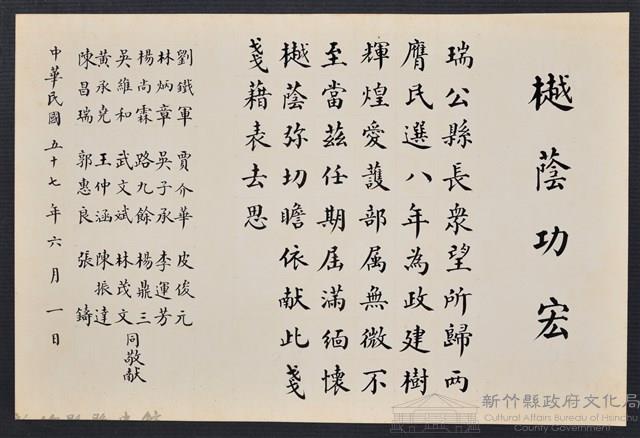 樾蔭功宏
瑞公縣長衆望所歸兩
膺民選八年為政建樹
輝煌愛護部属無微不
至當茲任期届滿緬懷
樾蔭弥切瞻依献此戔
戔藉表去思
劉鐵軍 賈介華 皮俊元
林炳章 吳子承 李運芳
楊尚霖 路九餘 楊鼎三
吳維和 武文斌 林茂文
黃承堯 王仲涵 陳振達
陳昌瑞 郭惠良 張鑄
同敬献
中華民國五十七年六月一日
新竹縣政府文化局
Cultural Affairs Bureau of Hsinchu
County Government